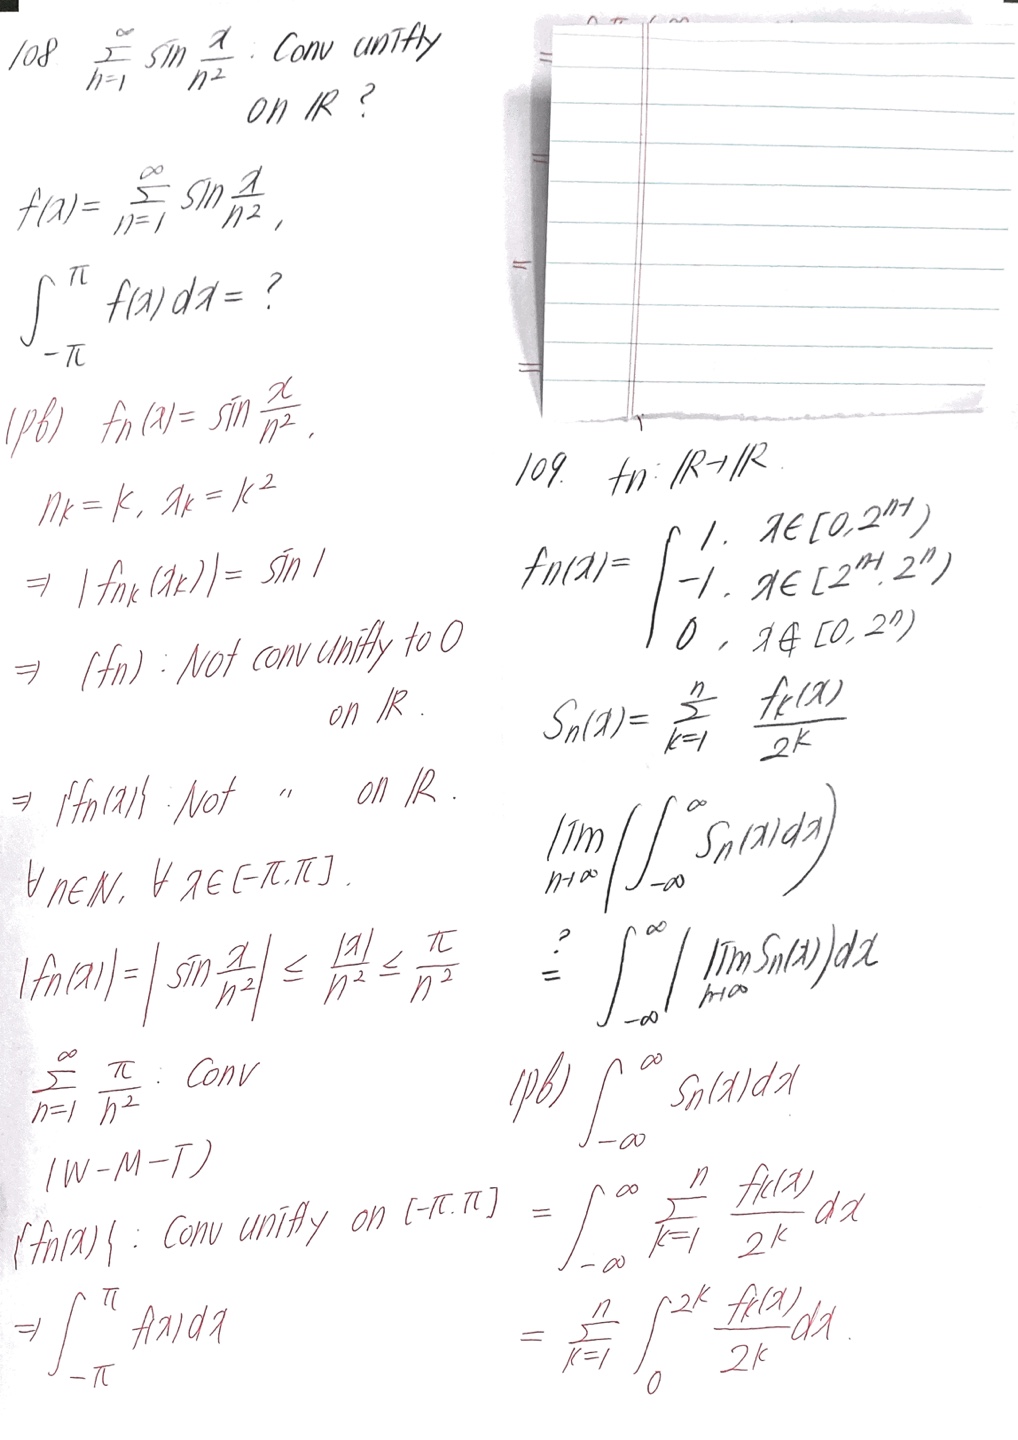 108 ∞Σn=1 sin x/n² : Conv unifly
on ℝ ?
f(x) = ∞Σn=1 sin x/n²,
∫_{-π}^{π} f(x) dx = ?
(pf) fn(x) = sin x/n².
nk = k, xk = k²
⇒ |fnk(xk)| = sin 1
⇒ (fn) : Not conv unifly to 0
on ℝ.
⇒ {fn(x)} : Not 〃 on ℝ.
∀n∈N, ∀x∈[-π.π].
|fn(x)| = |sin x/n²| ≤ |x|/n² ≤ π/n²
∞Σn=1 π/n² : Conv
(W-M-T)
{fn(x)} : Conv unifly on [-π.π]
⇒ ∫_{-π}^{π} f(x)dx
109. fn : ℝ→ℝ.
fn(x) = { 1. x∈[0,2^{n-1})
-1. x∈[2^{n-1}.2^n)
0, x∉[0,2^n)
Sn(x) = nΣk=1 fk(x)/2^k
lim n→∞ (∫_{-∞}^{∞} Sn(x)dx)
?= ∫_{-∞}^{∞} (lim n→∞ Sn(x))dx
(pf) ∫_{-∞}^{∞} Sn(x)dx
= ∫_{-∞}^{∞} nΣk=1 fk(x)/2^k dx
= nΣk=1 ∫_0^{2^k} fk(x)/2^k dx.